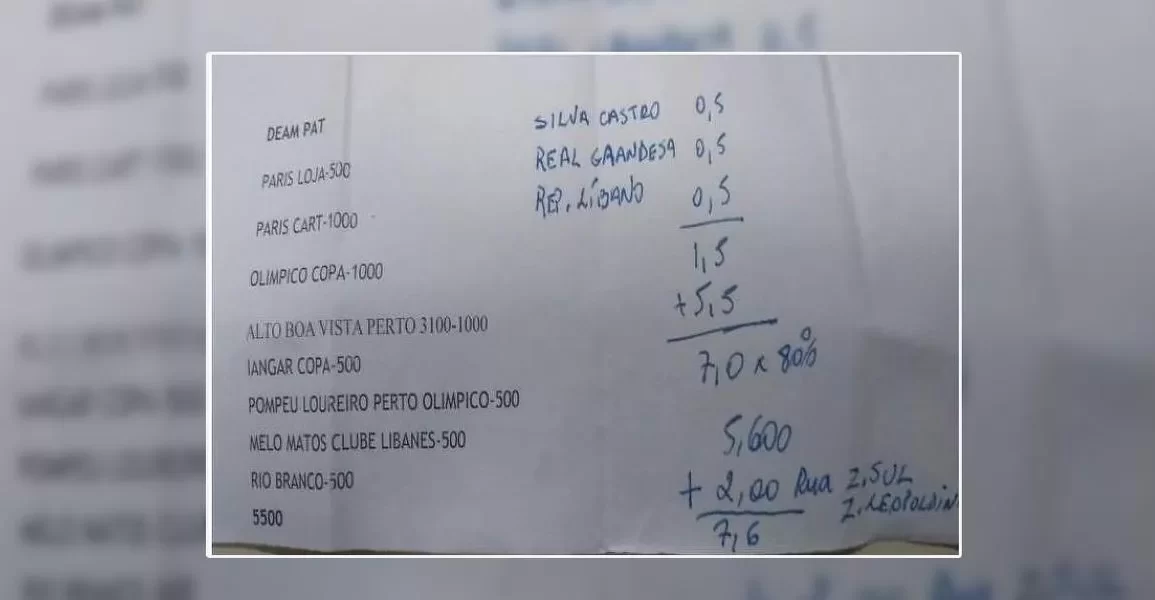 DEAM PAT
PARIS LOJA-500
PARIS CART-1000
OLIMPICO COPA-1000
ALTO BOA VISTA PERTO 3100-1000
IANGAR COPA-500
POMPEU LOUREIRO PERTO OLIMPICO-500
MELO MATOS CLUBE LIBANES-500
RIO BRANCO-500
5500
SILVA CASTRO 0,5
REAL GRANDESA 0,5
REP. LÍBANO 0,5
1,5
+5,5
7,0 x 80%
5,600
+ 2,00 Rua Z,SUL
Z.LEOPOLDIN
7,6